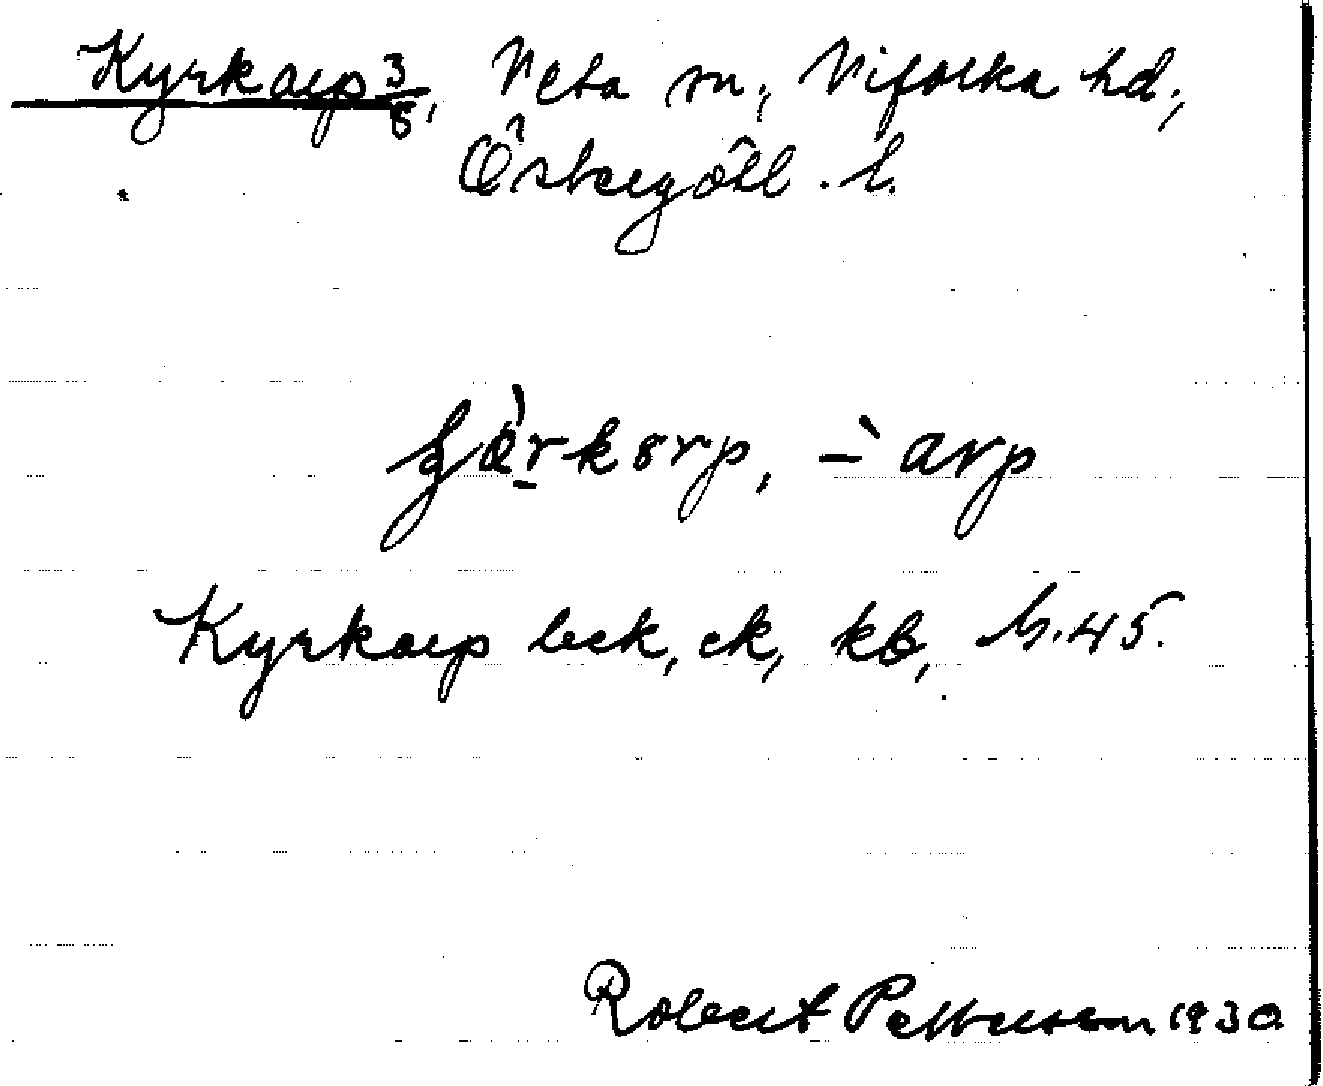 Kyrkarp 3/8, Veta sn, Vifolka hd.,
Östergötl. l.
-àrp
Kyrkarp bek, ek, kb, 45.
Robert Pettersson 1930